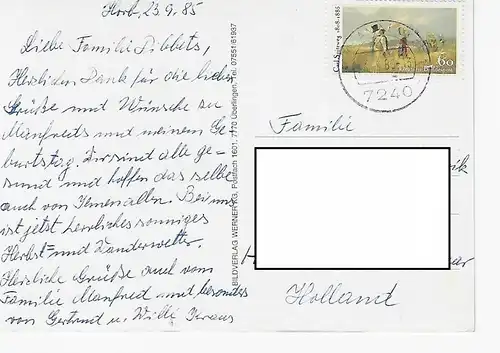 Horb, 23.9.85
Liebe Familie Pibbets,
Herzlichen Dank für die lieben
Grüße und Wünsche zu
Manfreds und meinem Ge-
burtstag. Wir sind alle ge-
sund und hoffen dasselbe
auch von Ihnen allen. Bei uns
ist jetzt herrliches sonniges
Herbst- und Wanderwetter.
Herzliche Grüße auch von
Familie Manfred und besonders
von Gertrud u. Willi
BILDVERLAG WERNER KG, Postfach 1601, 7770 Überlingen, Tel. 07551/61937
Carl Spitzweg 1808-1885
60
7240
Familie
Holland